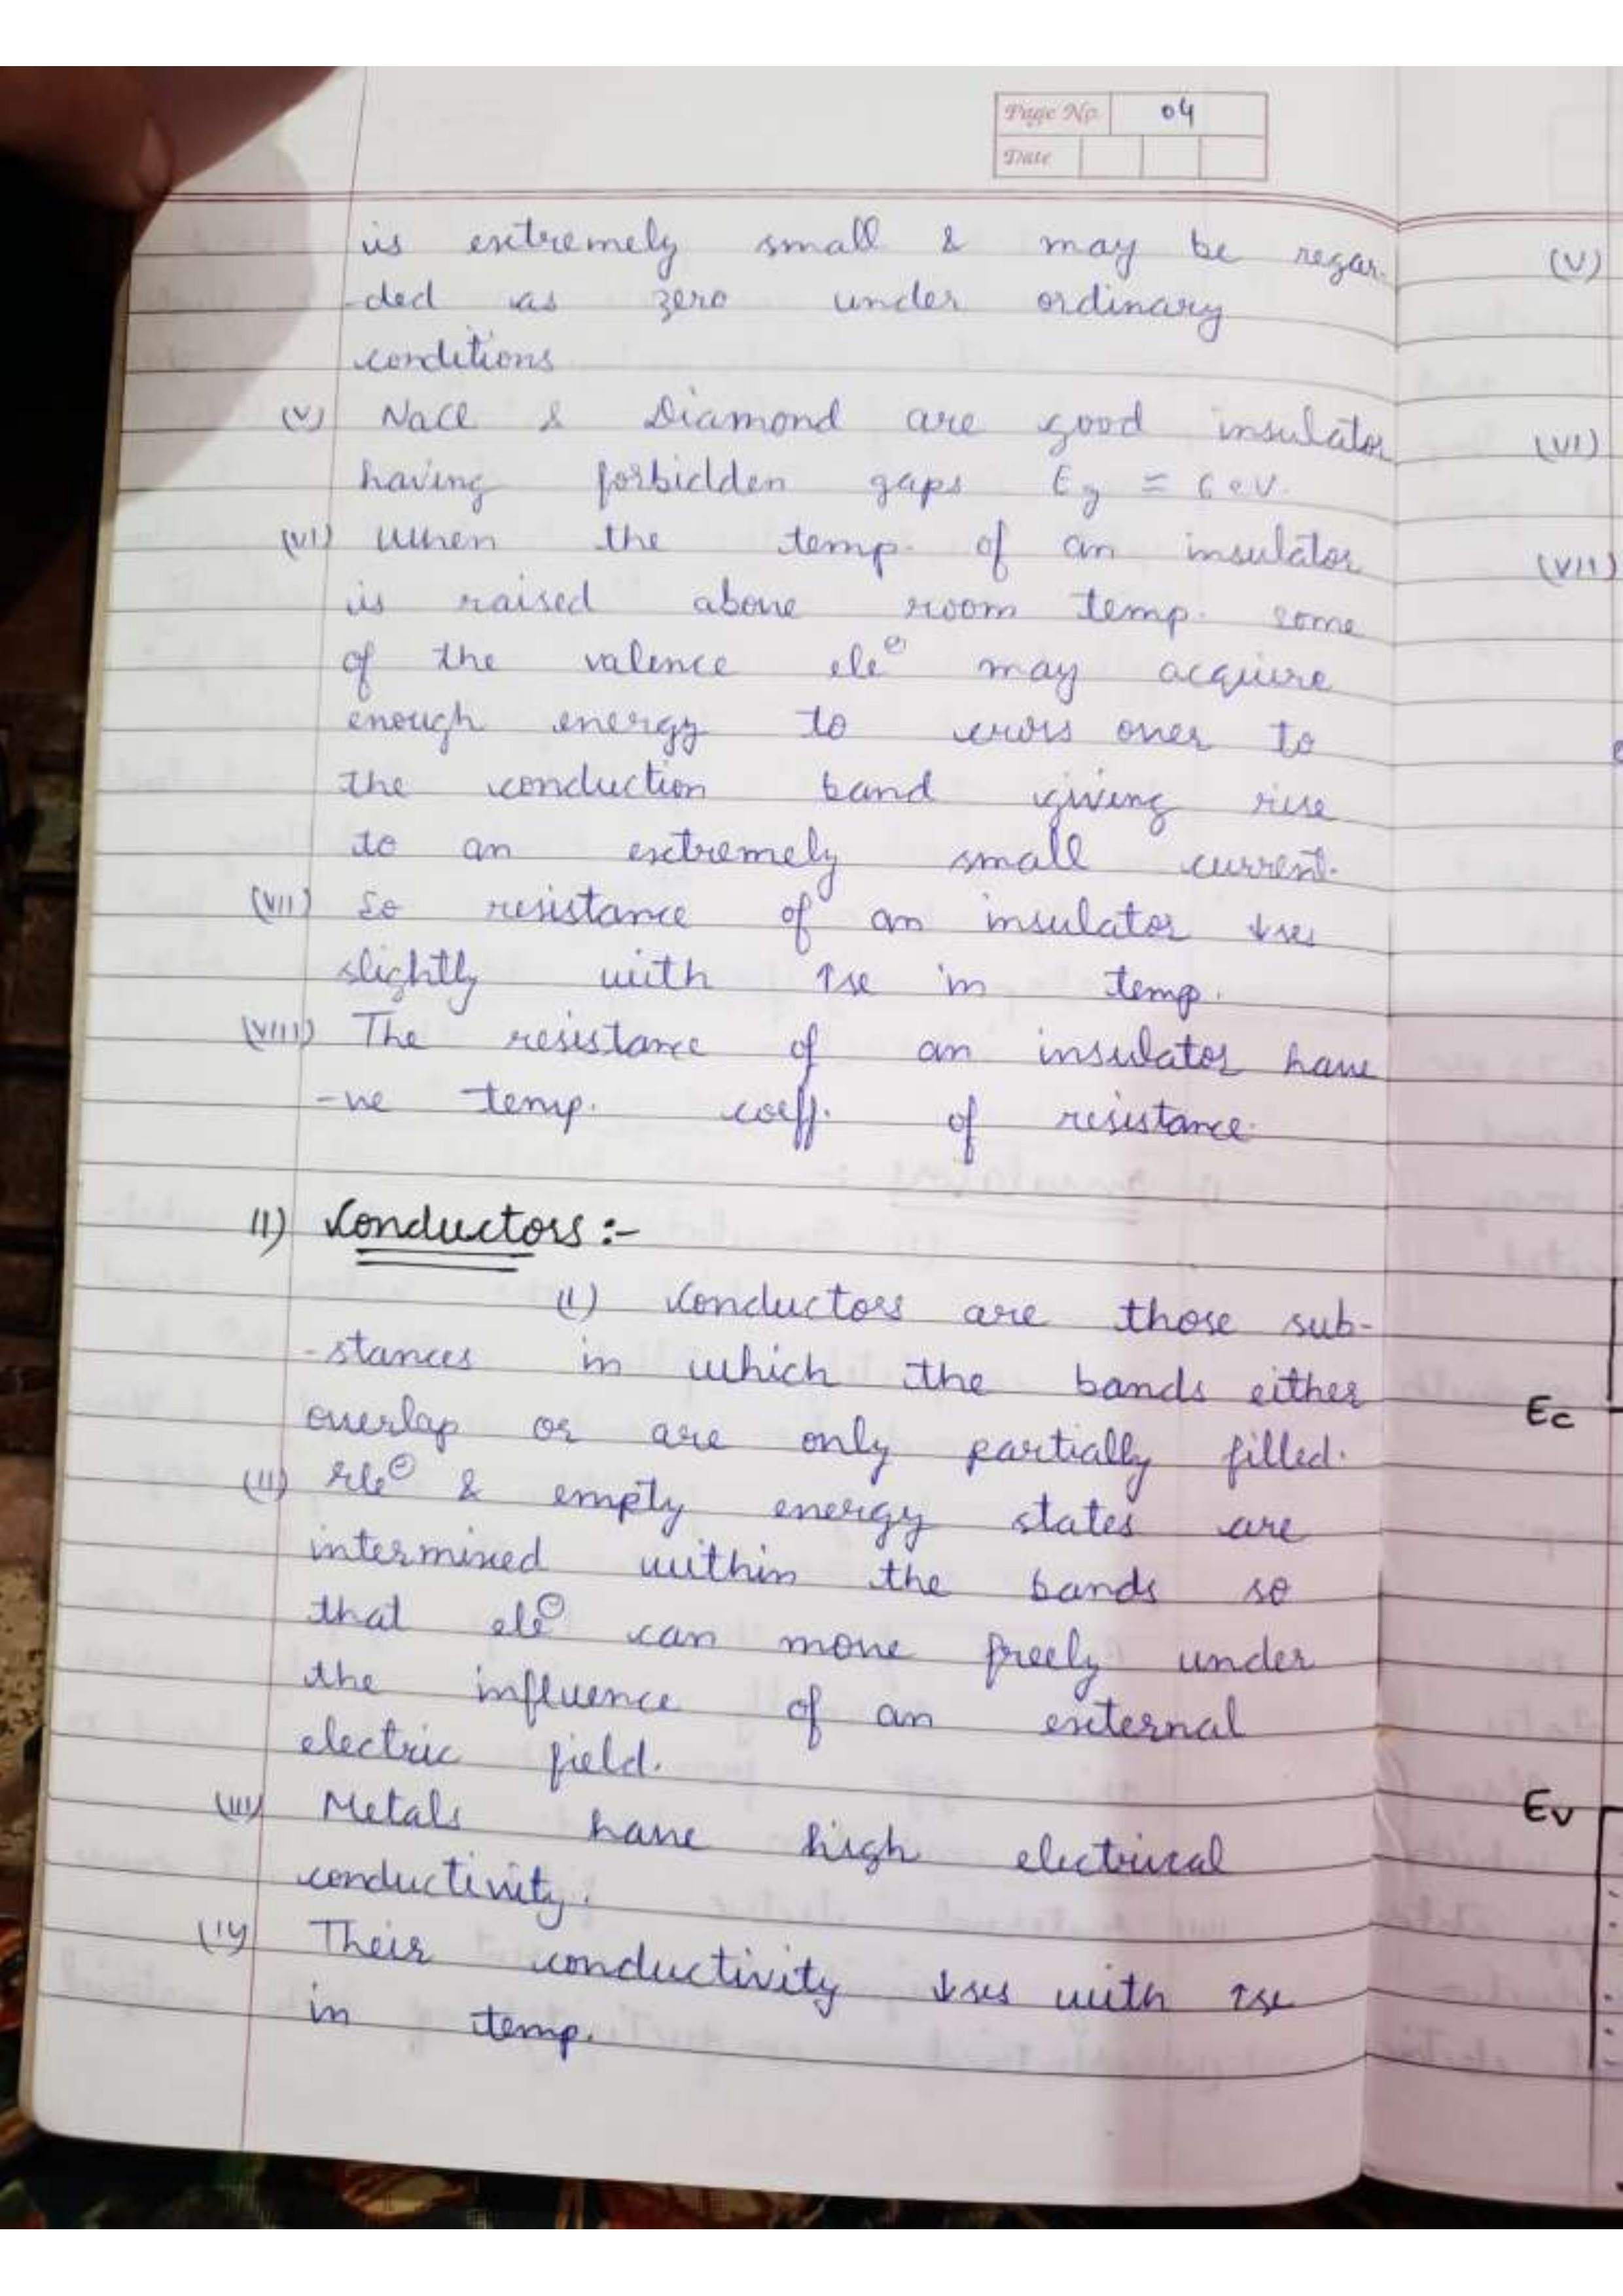 Page No. 04
Date
is extremely small & may be regar-
-ded as zero under ordinary
conditions
(V) NaCl & Diamond are good insulator
having forbidden gaps Eg = 6 eV.
(VI) When the temp. of an insulator
is raised above room temp. some
of the valence ele⊖ may acquire
enough energy to cross over to
the conduction band giving rise
to an extremely small current.
(VII) So resistance of an insulator ↓ses
slightly with ↑se in temp.
(VIII) The resistance of an insulator have
-ve temp. coeff. of resistance.
II) Conductors :-
(I) Conductors are those sub-
-stances in which the bands either
overlap or are only partially filled.
(II) Ele⊖ & empty energy states are
intermixed within the bands so
that ele⊖ can move freely under
the influence of an external
electric field.
(III) Metals have high electrical
conductivity.
(IV) Their conductivity ↓ses with ↑se
in temp.
(V)
(VI)
(VII)
Ec
Ev